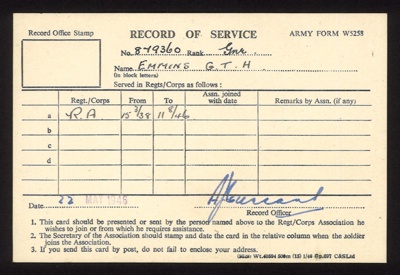 Record Office Stamp RECORD OF SERVICE ARMY FORM W5258
No. 879360 Rank Gnr.
Name EMMENS G. T. H.
(in block letters)
Served in Regts/Corps as follows :
Regt./Corps From To Assn. joined with date Remarks by Assn. (if any)
a R.A. 15 3/38 11 8/46
b
c
d
Date 22 MAY 1946
Record Officer
1. This card should be presented or sent by the person named above to the Regt/Corps Association he
wishes to join or from which he requires assistance.
2. The Secretary of the Association should stamp and date the card in the relative column when the soldier
joins the Association.
3. If you send this card by post, do not fail to enclose your address.